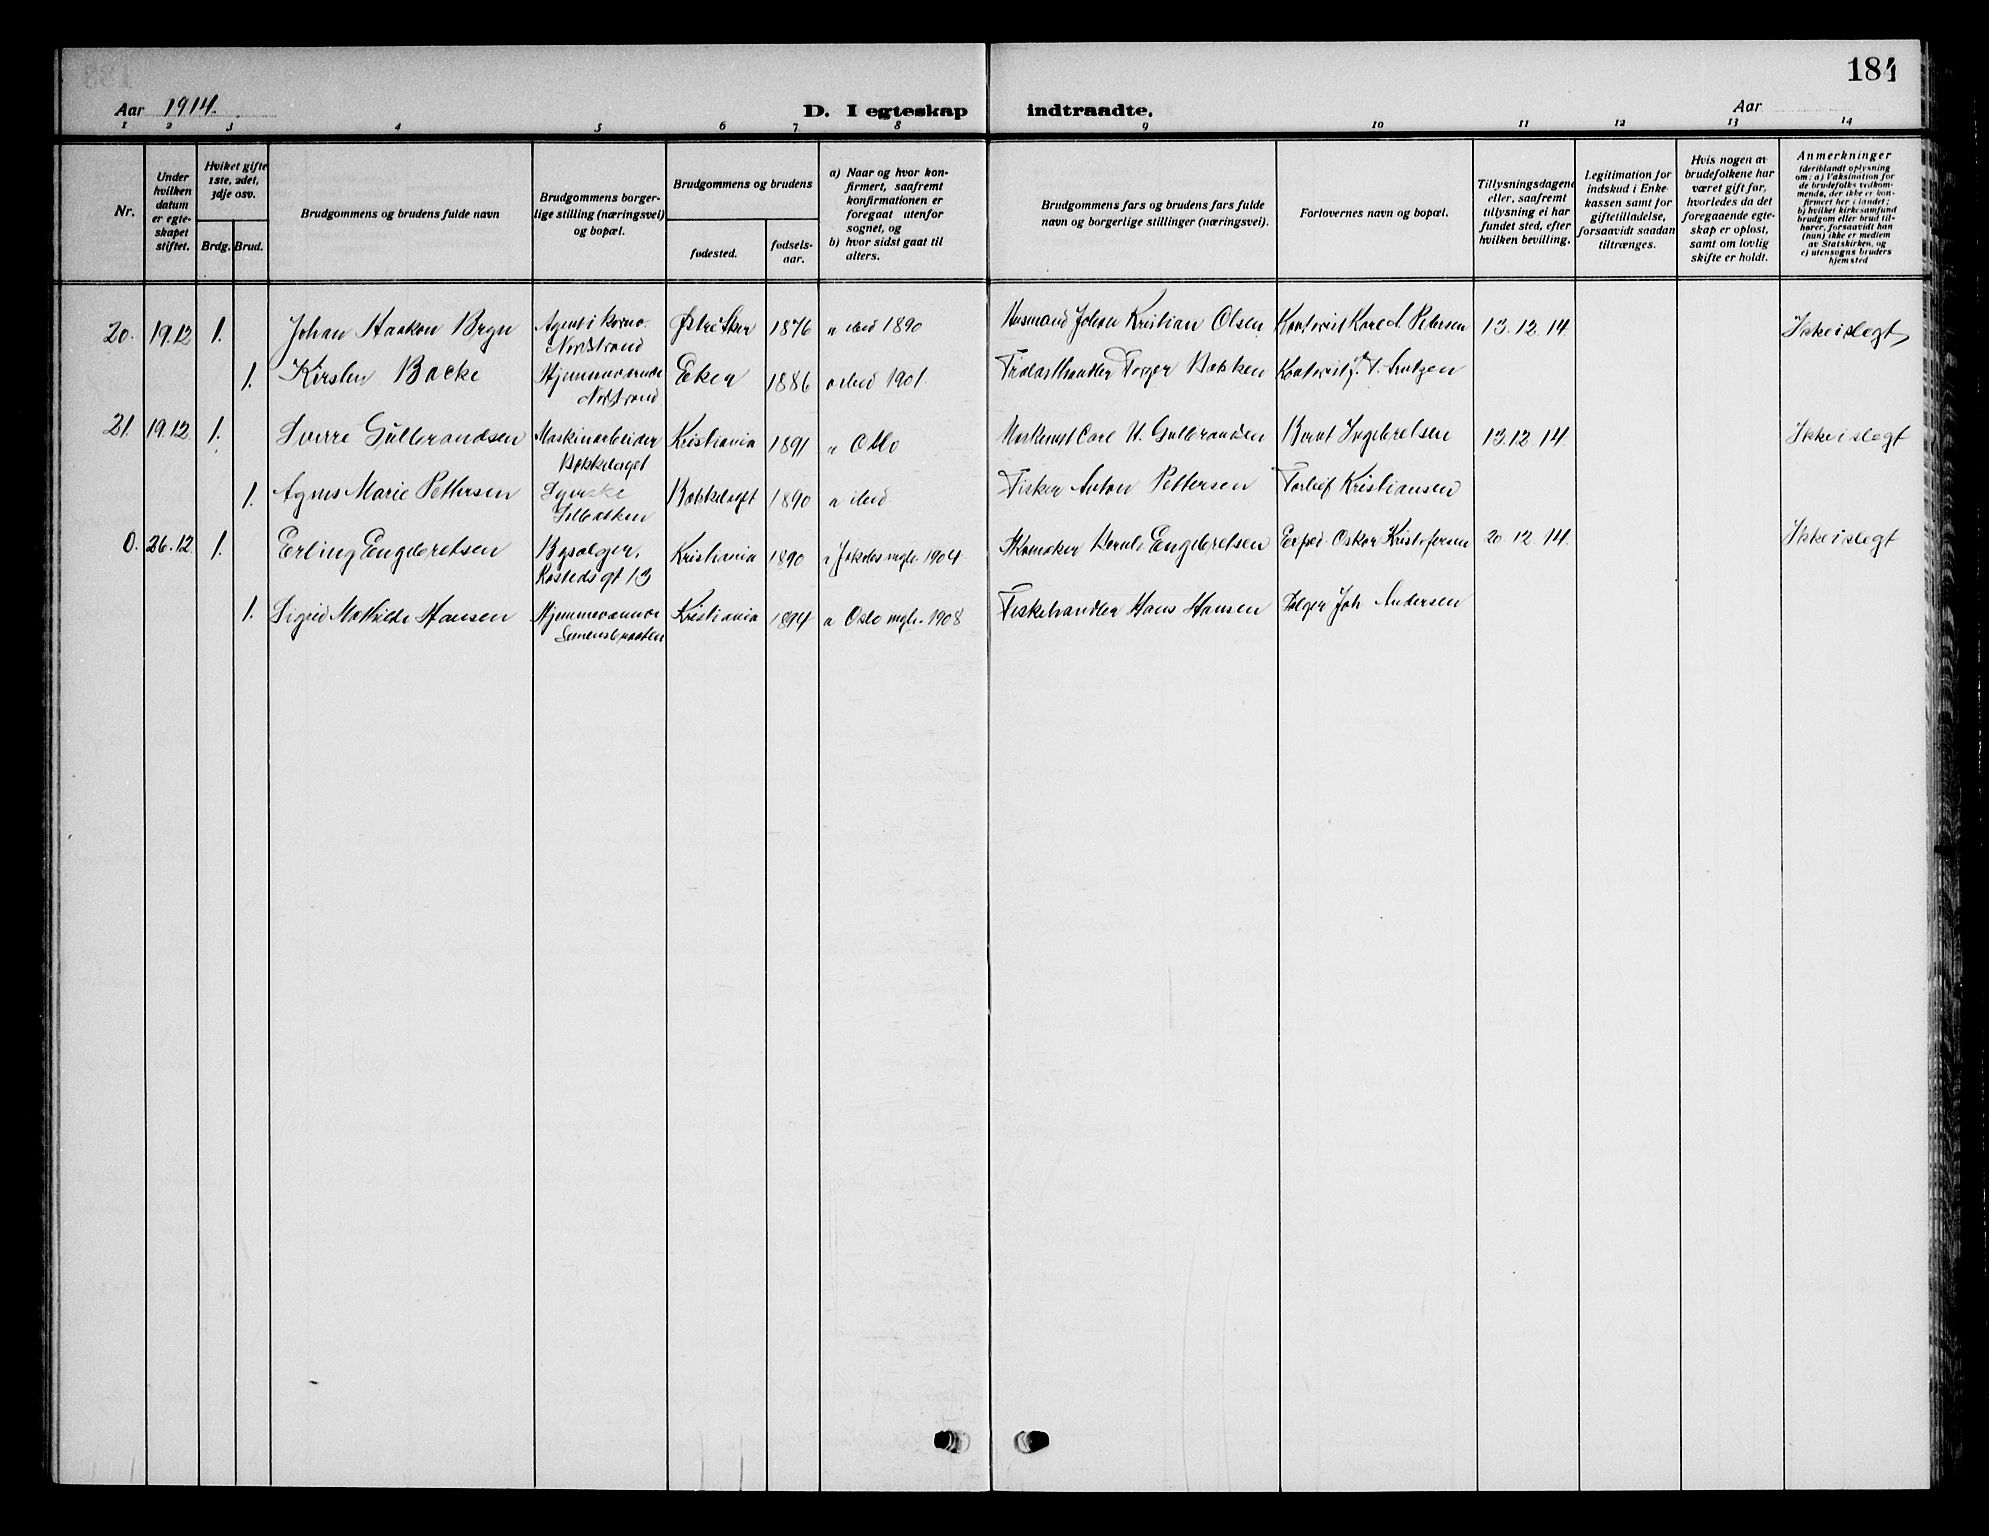 184
Aar 1914. D. I egteskap indtraadte. Aar
1 2 3 4 5 6 7 8 9 10 11 12 13 14
Nr.
Under hvilken datum er egteskapet stiftet.
Hvilket gifte 1ste, 2det, 3dje osv.
Brdg. Brud.
Brudgommens og brudens fulde navn
Brudgommens borgerlige stilling (næringsvei) og bopæl.
Brudgommens og brudens
fødested.
fødsels-aar.
a) Naar og hvor konfirmert, saafremt konfirmationen er foregaat utenfor sognet, og
b) hvor sidst gaat til alters.
Brudgommens fars og brudens fars fulde navn og borgerlige stillinger (næringsvei).
Forlovernes navn og bopæl.
Tillysningsdagene eller, saafremt tillysning ei har fundet sted, efter hvilken bevilling.
Legitimation for indskud i Enkekassen samt for giftetilladelse, forsaavidt saadan tiltrænges.
Hvis nogen av brudefolkene har været gift før, hvorledes da det foregaaende egteskap er opløst, samt om lovlig skifte er holdt.
Anmerkninger
(deriblandt oplysning om: a) Vaksination for de brudefolks vedkommende, der ikke er konfirmert her i landet;
b) hvilket kirkesamfund brudgom eller brud tilhører, forsaavidt han (hun) ikke er medlem av Statskirken, og
c) utensogns bruders hjemsted
20. 19.12 1. Johan Haakon Bryn Agent i Nordstrand Østre Aker 1876 a ibid 1890 Husmand Johan Kristian Olsen Kontorist Karl A. Petersen 13.12.14. Ikke i slegt
1. Kirsten Bakke Hjemmeværende Nordstrand Eker 1886 a ibid 1901. Trælasthandler Torger Bakken Kontorist
21. 19.12 1. Sverre Gulbrandsen Maskinarbeider Bækkelaget Kristiania 1891 a Oslo Maskinist Carl H. Gulbrandsen Bernt Ingebretsen 13.12.14. Ikke i slegt
1. Agnes Marie Pettersen Syerske Bækkelaget 1890 a ibid. Fisker Anton Pettersen Torleif Kristiansen
0. 26.12. 1. Erling Engebretsen Bysælger, Rostedsgt 13 Kristiania 1890 a Jakobs mgh. 1904 Skomaker Bernt Engebretsen Exped. Oskar Kristofersen 20.12.14. Ikke i slegt
1. Sigrid Mathilde Hansen Hjemmeværende Simensbraaten Kristiania 1894 a Oslo mgh. 1908 Fiskehandler Hans Hansen Selger Joh. Andersen